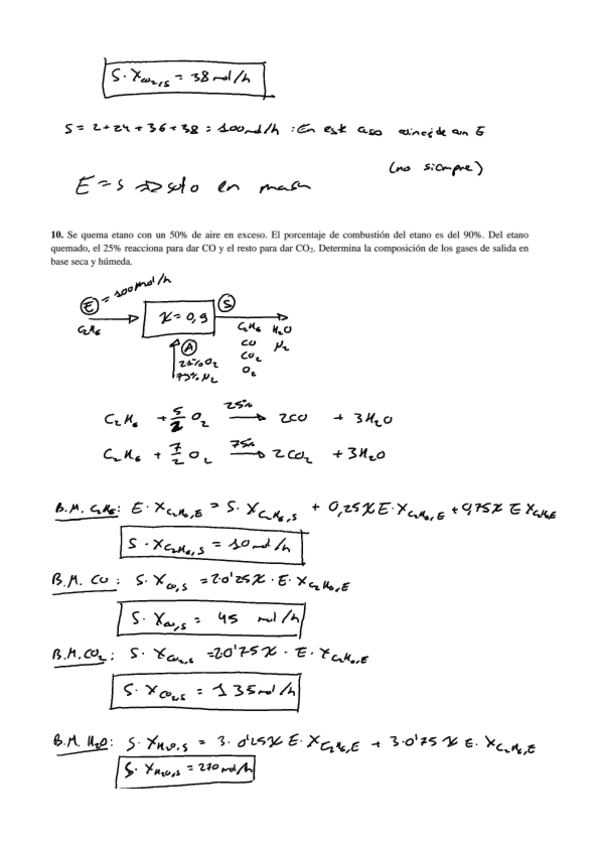 S·X_CO₂,S = 38 mol/h
S = 2+24+36+38 = 100 mol/h : En este caso coincide con E
(no siempre)
E = S ⇒ solo en masa
10. Se quema etano con un 50% de aire en exceso. El porcentaje de combustión del etano es del 90%. Del etano
quemado, el 25% reacciona para dar CO y el resto para dar CO₂. Determina la composición de los gases de salida en
base seca y húmeda.
E = 100 mol/h
C₂H₆
X = 0,9
S
C₂H₆ H₂O
CO N₂
CO₂
O₂
A
21% O₂
79% N₂
C₂H₆ + 5/2 O₂ 25% → 2CO + 3H₂O
C₂H₆ + 7/2 O₂ 75% → 2CO₂ + 3H₂O
B.M. C₂H₆: E·X_C₂H₆,E = S·X_C₂H₆,S + 0,25 X E·X_C₂H₆,E + 0,75 X E X_C₂H₆,E
S·X_C₂H₆,S = 10 mol/h
B.M. CO: S·X_CO,S = 2·0'25 X·E·X_C₂H₆,E
S·X_CO,S = 45 mol/h
B.M. CO₂: S·X_CO₂,S = 2·0'75 X·E·X_C₂H₆,E
S·X_CO₂,S = 135 mol/h
B.M. H₂O: S·X_H₂O,S = 3·0'25 X E·X_C₂H₆,E + 3·0'75 X E·X_C₂H₆,E
S·X_H₂O,S = 270 mol/h